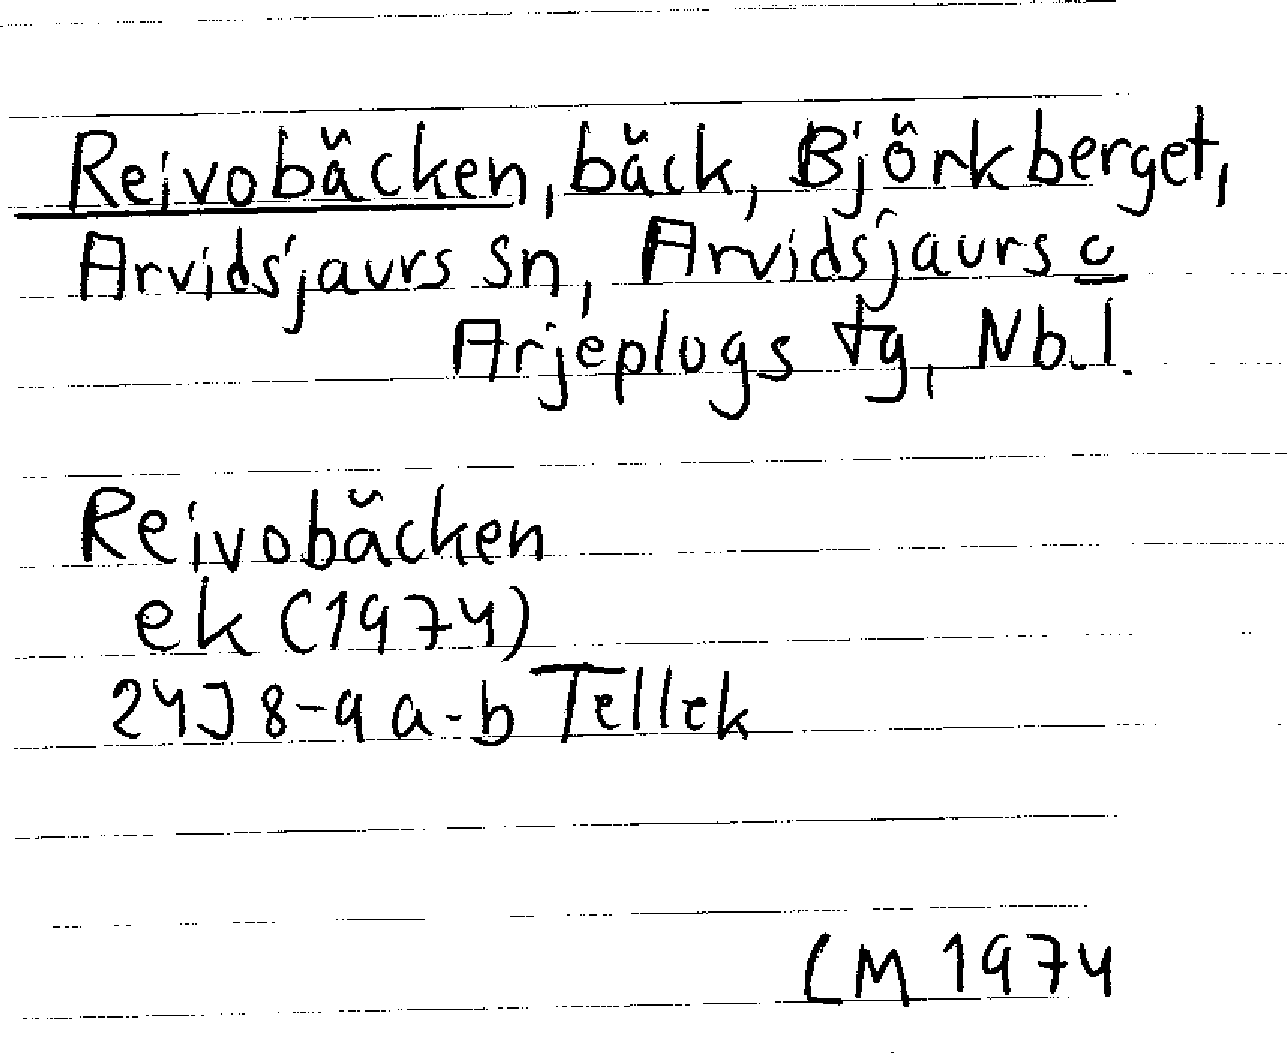 Reivobäcken, bäck, Björkberget,
Arvidsjaurs sn, Arvidsjaurs o
Arjeplogs tg, Nb.l.
Reivobäcken
ek (1974)
24J 8-9 a-b Tellek
LM 1974